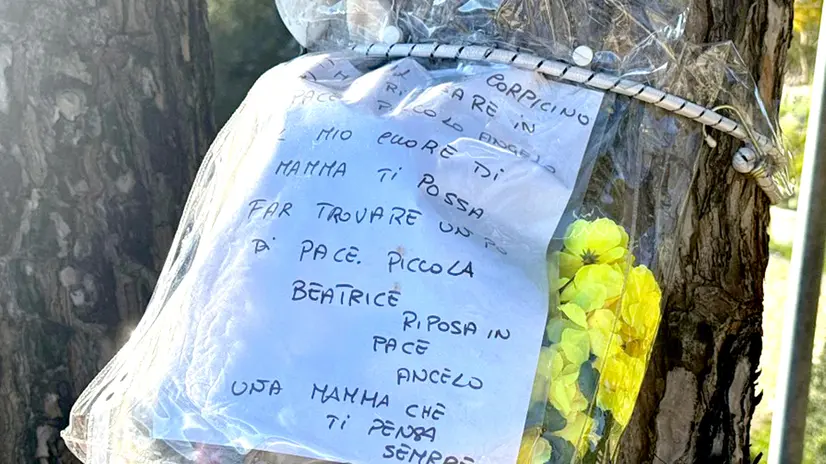 CORPICINO
PACE RIPOSARE IN
PICCOLO ANGELO
IL MIO CUORE DI
MAMMA TI POSSA
FAR TROVARE UN PO
DI PACE. PICCOLA
BEATRICE
RIPOSA IN
PACE
ANGELO
UNA MAMMA CHE
TI PENSA
SEMPRE